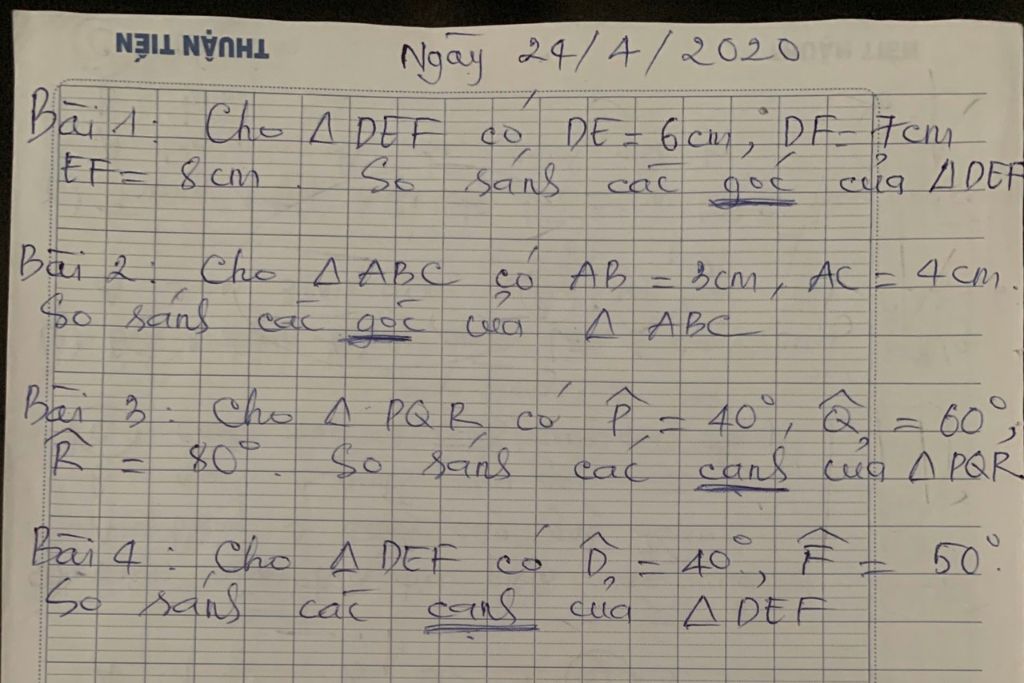 THUẬN TIẾN
Ngày 24/4/2020
Bài 1: Cho Δ DEF có DE = 6cm; DF = 7cm
EF = 8cm. So sánh các góc của Δ DEF
Bài 2: Cho Δ ABC có AB = 3cm, AC = 4cm.
So sánh các góc của Δ ABC
Bài 3: Cho Δ PQR có P̂ = 40°, Q̂ = 60°,
R̂ = 80°. So sánh các cạnh của Δ PQR
Bài 4: Cho Δ DEF có D̂ = 40°, F̂ = 50°.
So sánh các cạnh của Δ DEF